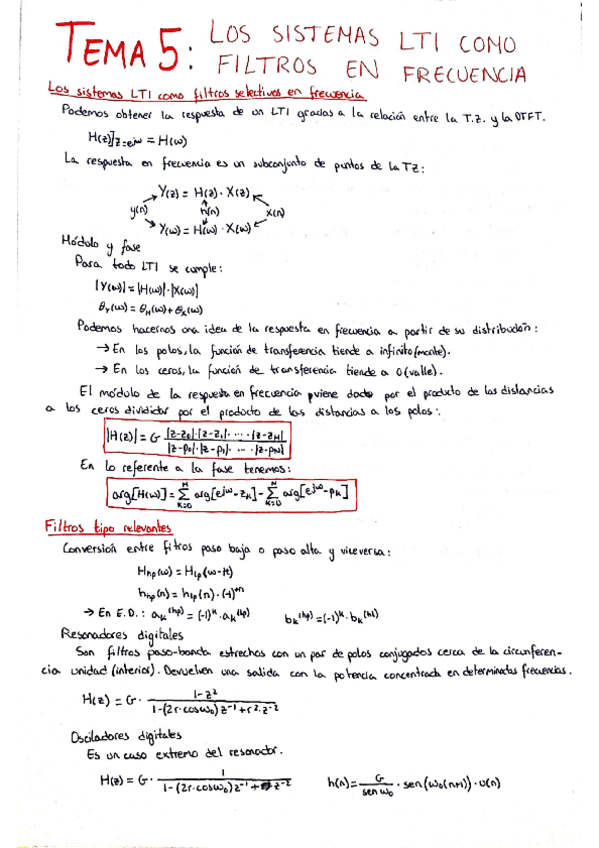 TEMA 5: LOS SISTEMAS LTI COMO
FILTROS EN FRECUENCIA
Los sistemas LTI como filtros selectivos en frecuencia
Podemos obtener la respuesta de un LTI gracias a la relación entre la T.Z. y la DTFT.
H(z)]z=ejω = H(ω)
La respuesta en frecuencia es un subconjunto de puntos de la TZ:
Y(z) = H(z) · X(z)
y(n) h(n) x(n)
Y(ω) = H(ω) · X(ω)
Módulo y fase
Para todo LTI se cumple:
|Y(ω)| = |H(ω)| · |X(ω)|
θY(ω) = θH(ω) + θX(ω)
Podemos hacernos una idea de la respuesta en frecuencia a partir de su distribución:
→ En los polos, la función de transferencia tiende a infinito (monte).
→ En los ceros, la función de transferencia tiende a 0 (valle).
El módulo de la respuesta en frecuencia viene dado por el producto de las distancias
a los ceros dividido por el producto de las distancias a los polos:
|H(z)| = G |z-z0|·|z-z1|· ... ·|z-zM| / |z-p0|·|z-p1|· ... ·|z-pN|
En lo referente a la fase tenemos:
arg[H(ω)] = Σ M k=0 arg[ejω - zk] - Σ N k=0 arg[ejω - pk]
Filtros tipo relevantes
Conversión entre fitros paso baja o paso alta y viceversa:
Hhp(ω) = Hlp(ω-π)
hhp(n) = hlp(n) · (-1)n
→ En E.D.: ak(hp) = (-1)k · ak(lp) bk(hp) = (-1)k · bk(lp)
Resonadores digitales
Son filtros paso-banda estrechos con un par de polos conjugados cerca de la circunferen-
cia unidad (interior). Devuelven una salida con la potencia concentrada en determinadas frecuencias.
H(z) = G · 1-z² / 1-(2r·cosω0)z⁻¹+r²·z⁻²
Osciladores digitales
Es un caso extremo del resonador.
H(z) = G · 1 / 1-(2r·cosω0)z⁻¹+z⁻² h(n) = G / sen ω0 · sen(ω0(n+1)) · u(n)